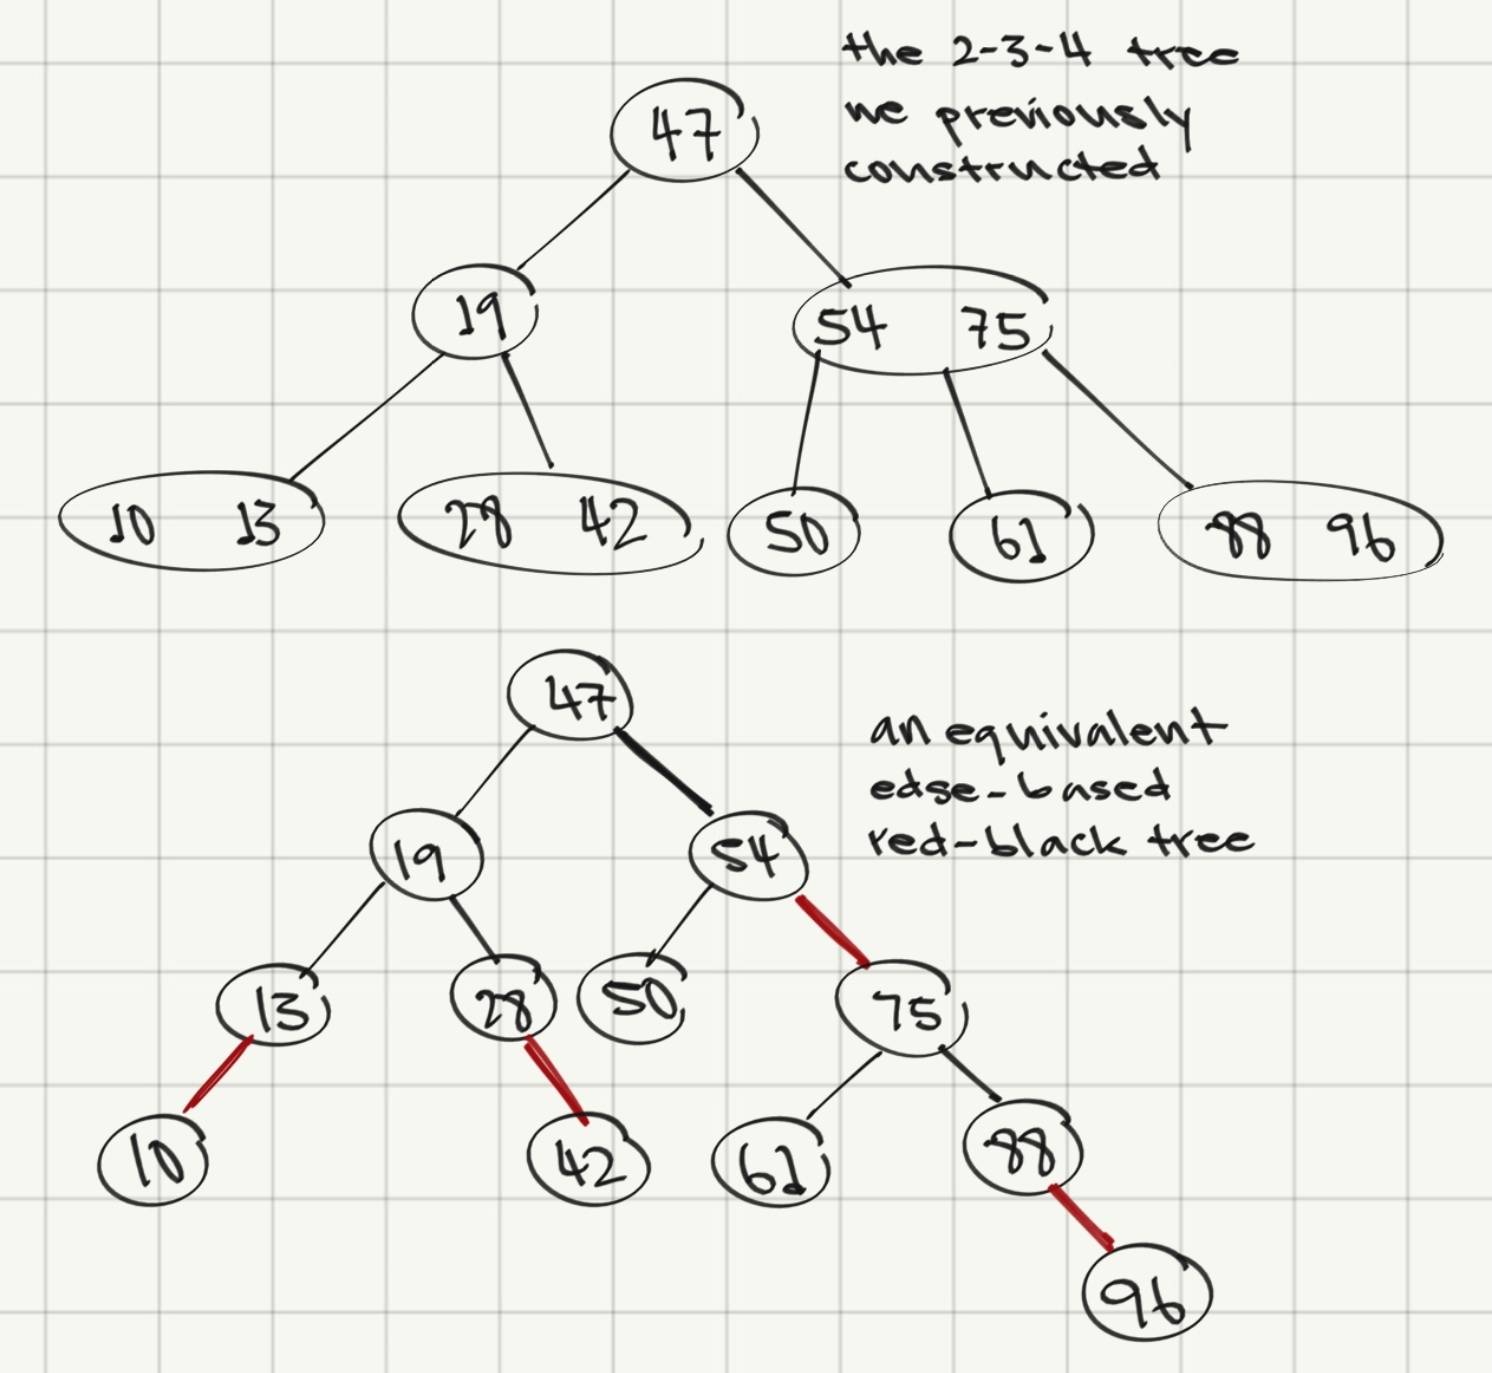 the 2-3-4 tree
we previously
constructed
47
19
54 75
10 13
28 42
50
61
88 96
an equivalent
edge-based
red-black tree
47
19
54
13
28
50
75
10
42
61
88
96